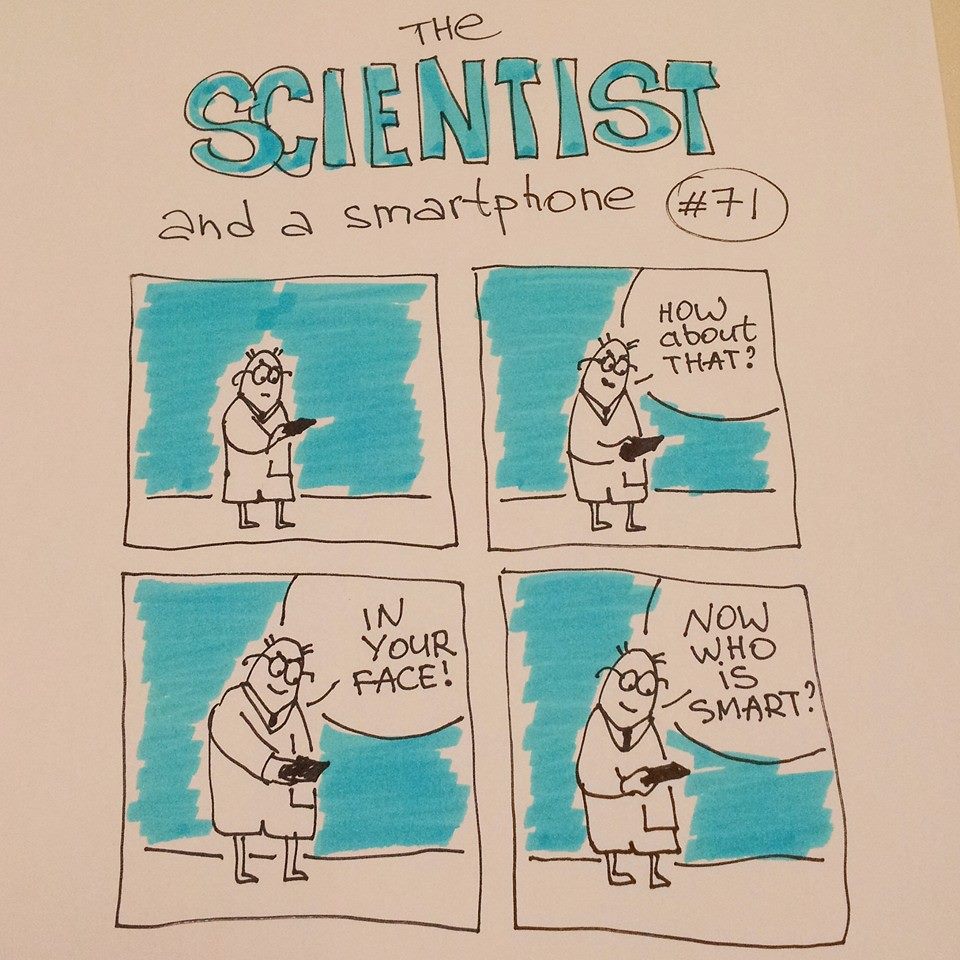 THE
SCIENTIST
and a smartphone #71
HOW
about
THAT?
IN
YOUR
FACE!
NOW
WHO
IS
SMART?